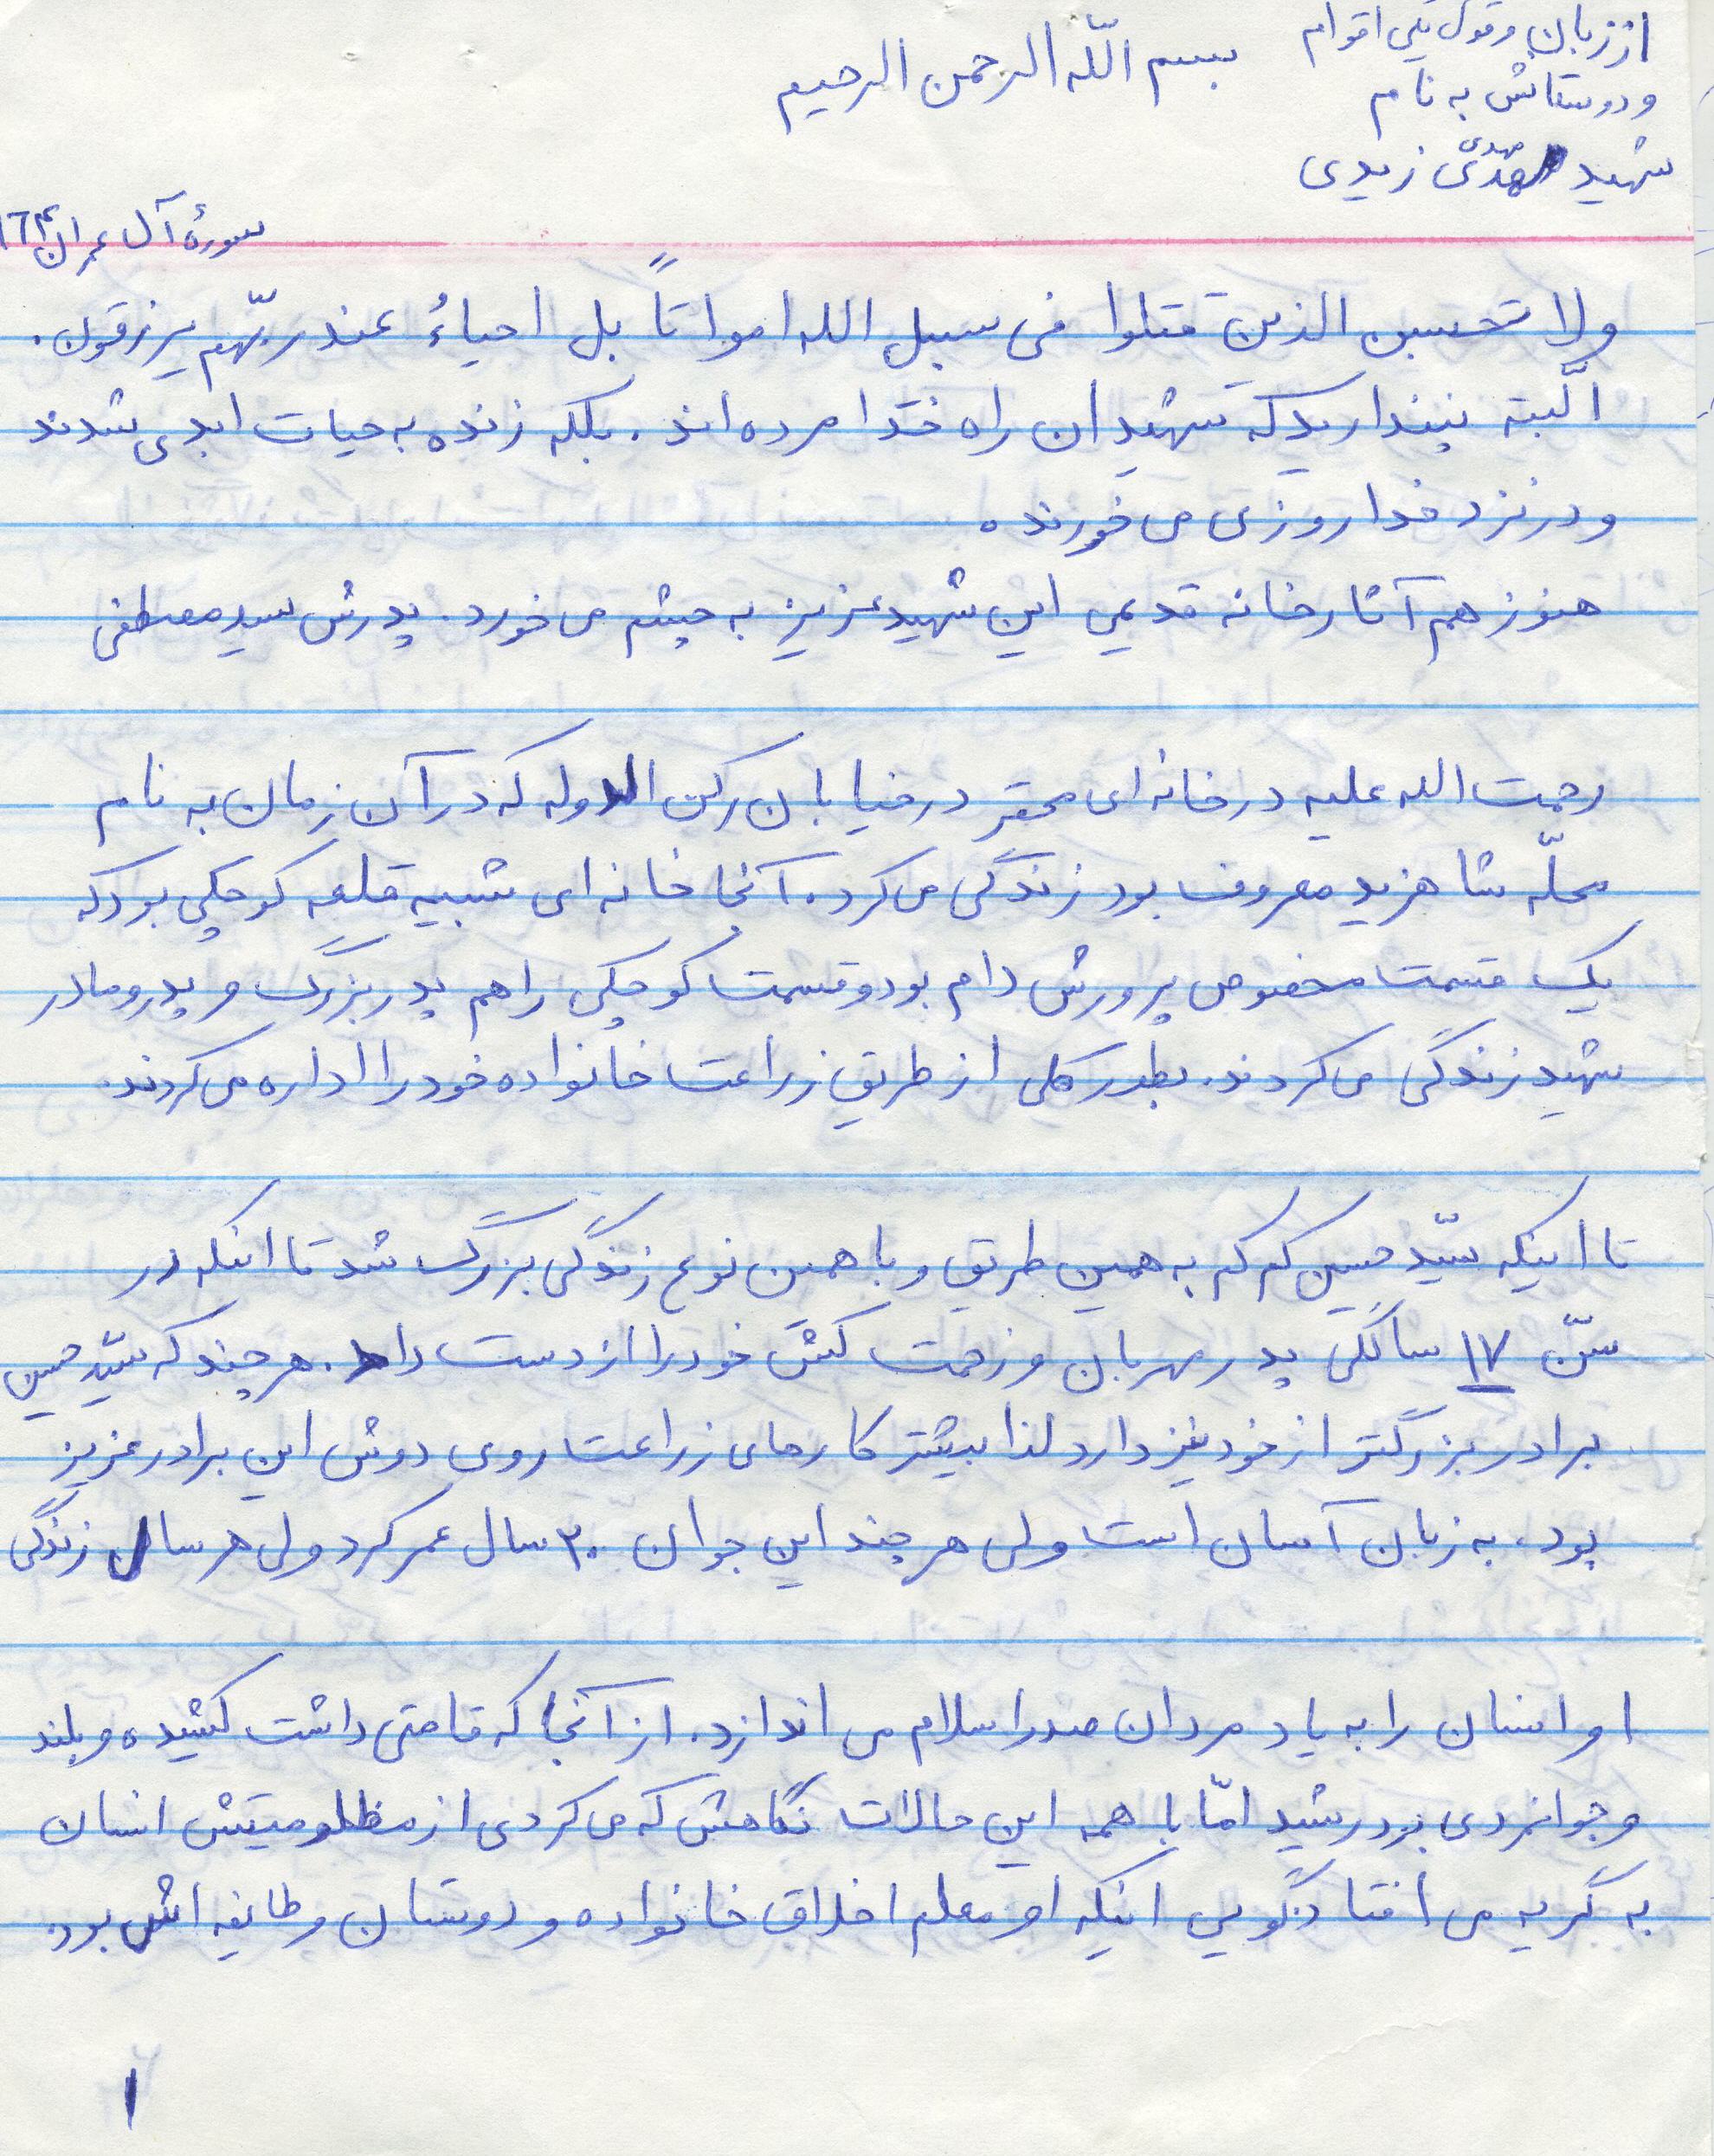 از زبان و قول یکی اقوام
و دوستانش به نام
شهید مهدی زیدی
بسم اللّه الرحمن الرحیم
سورهٔ آل عمران
ولا تحسبن الذین قتلوا فی سبیل الله امواتاً بل احیاءُ عند ربّهم یرزقون.
الّبته نپندارید که شهیدان راه خدا مرده اند. بلکه زنده به حیات ابدی شدند
و در نزد خدا روزی می خورند.
هنوز هم آثار خانه قدیمی این شهید عزیز به چشم می خورد. پدرش سید مصطفی
رحمت الله علیه در خانه ای محقر در خیابان رکن الدوله که در آن زمان به نام
محلّه شاهزید معروف بود زندگی می کرد. آنجا خانه ای شبیه قلعه کوچکی بود که
یک قسمت مخصوص پرورش دام بود و قسمت کوچکی را هم پدر بزرگ و پدر و مادر
شهید زندگی می کردند. بطور کلی از طریق زراعت خانواده خود را اداره می کردند.
تا اینکه سّید حسین کم کم به همین طریق و با همین نوع زندگی بزرگ شد تا اینکه در
سّن ۱۷ سالگی پدر مهربان و زحمت کش خود را از دست داد. هر چند که سّید حسین
برادر بزرگتر از خود نیز دارد لذا بیشتر کارهای زراعت روی دوش این برادر عزیز
بود. به زبان آسان است ولی هر چند این جوان ۲۰ سال عمر کرد ولی هر سال زندگی
او انسان را به یاد مردان صدر اسلام می اندازد. از آنجا که قامتی داشت کشیده و بلند
و جوانمردی بود رشید امّا با همه این حالات نگاهش که می کردی از مظلومیتش انسان
به گریه می افتاد گویی اینکه او معلم اخلاق خانواده و دوستان و طایفه اش بود.
۱